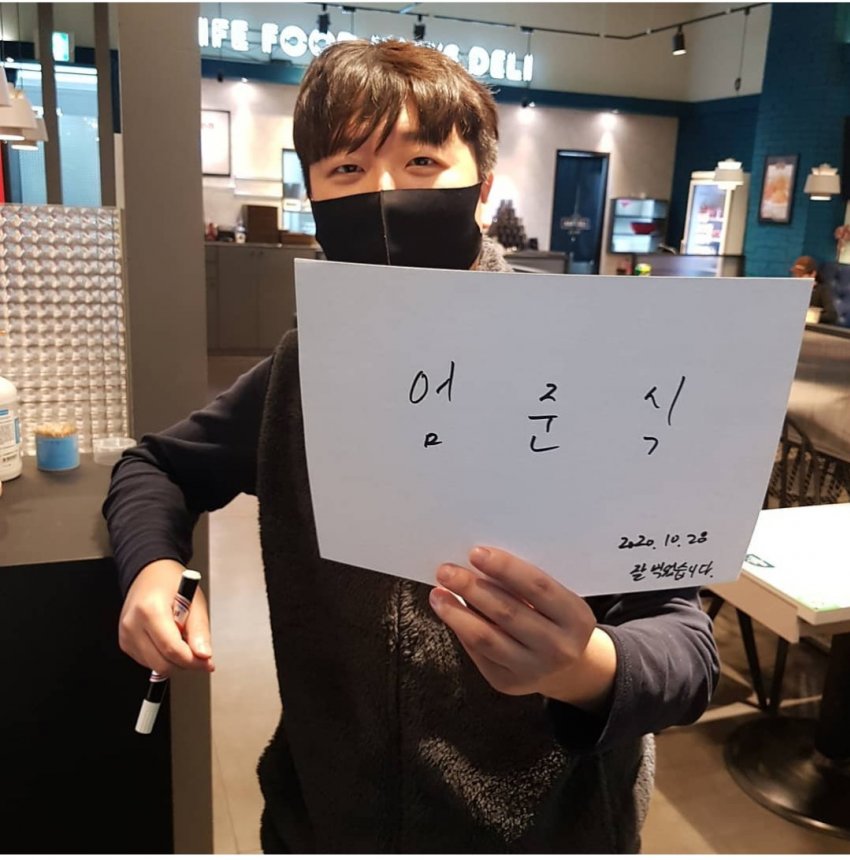 IFE FOOD
DELI
엄 준 식
2020.10.28
잘 먹었습니다.